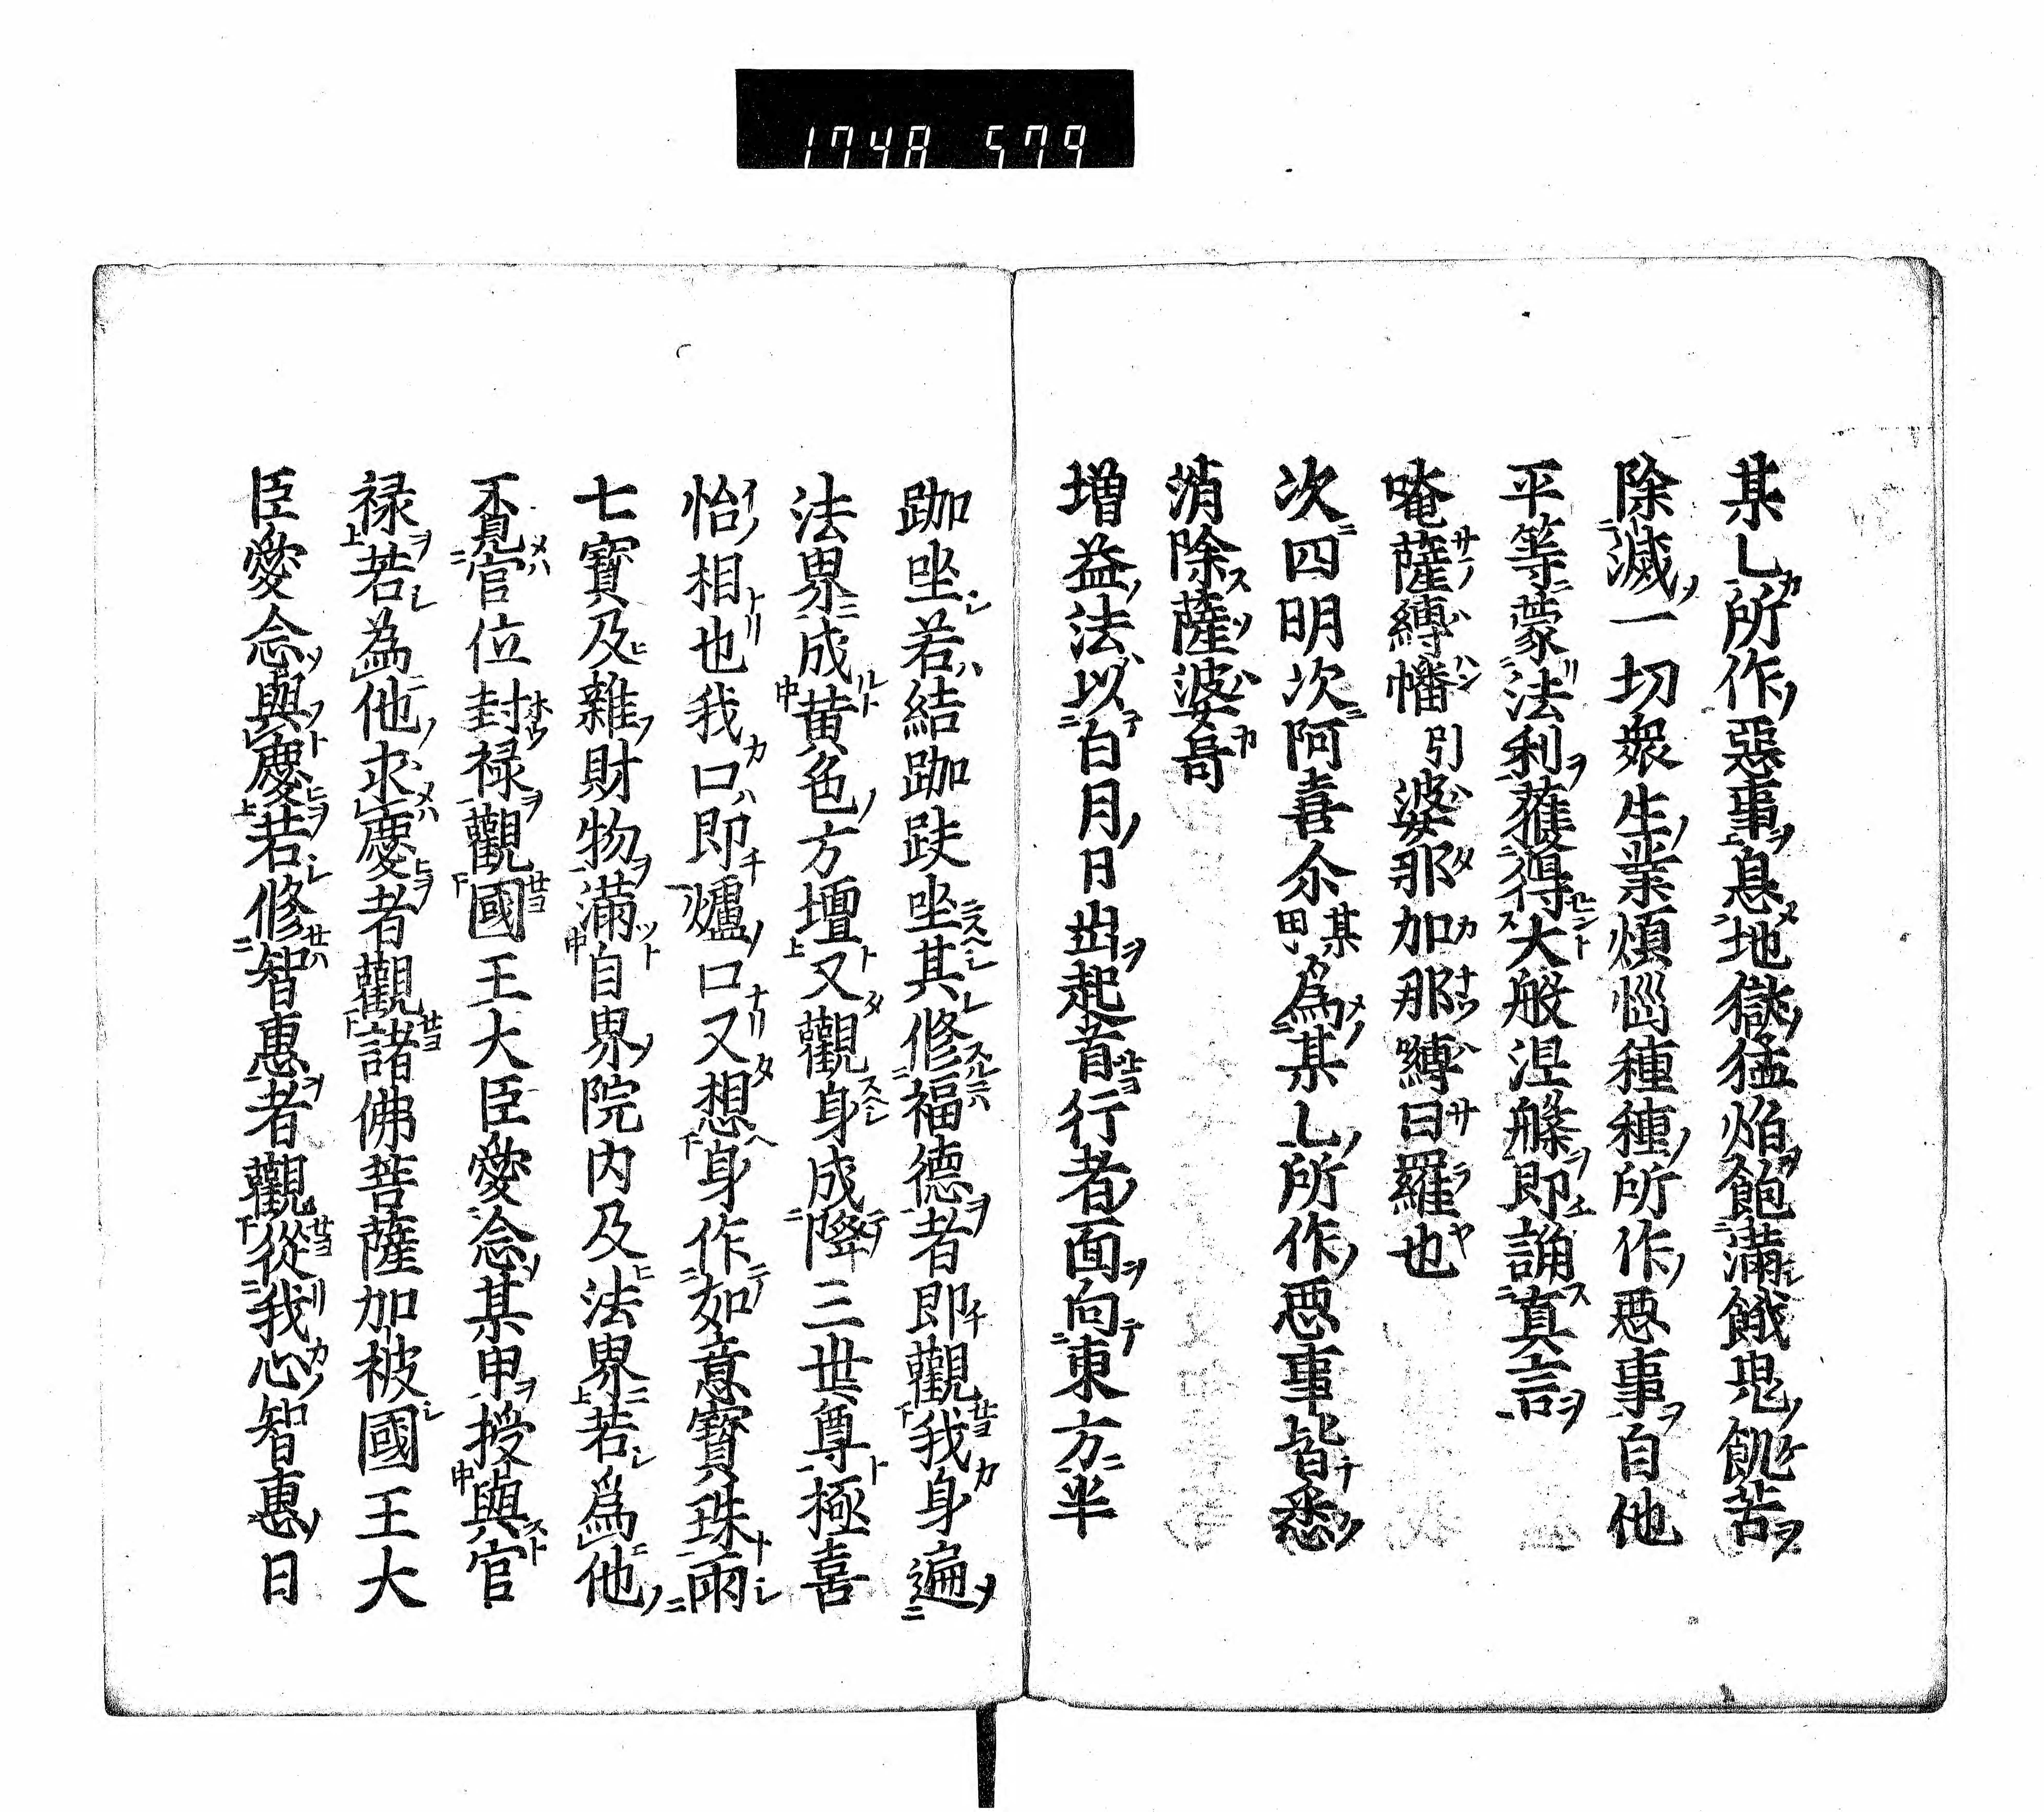 1748 579
某乚所作惡事息地獄猛焰飽滿餓鬼飢苦
除滅一切衆生業煩惱種種所作惡事自他
平等蒙法利獲得大般涅槃即誦真言
唵薩縛幡引婆那加那嚩曰羅也
次四明次阿喜尒某甲為某乚所作悪事皆悉
消除薩婆哥
増益法以白月日出起首行者面向東方半
跏坐若結跏趺坐其修福德者即觀我身遍
法界成黄色方壇又觀身成降三世尊極喜
怡相也我口即爐口又想身作如意寳珠雨
七寳及雜財物滿自界院内及法界若為他
覔官位封禄觀國王大臣愛念某甲授與官
禄若為他求慶者觀諸佛菩薩加被國王大
臣愛念與慶若修智惠者觀從我心智惠日